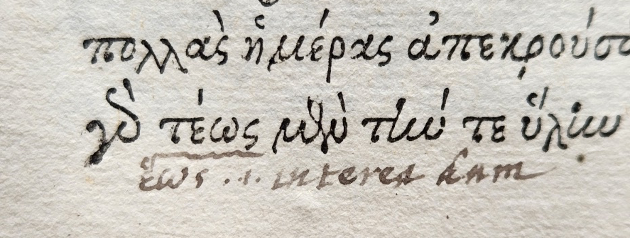 πολλὰς ἡμέρας ἀπεκρούσα
γὰρ τέως μὲν τὴν τε ὕλην
ἕως .i. interea dum